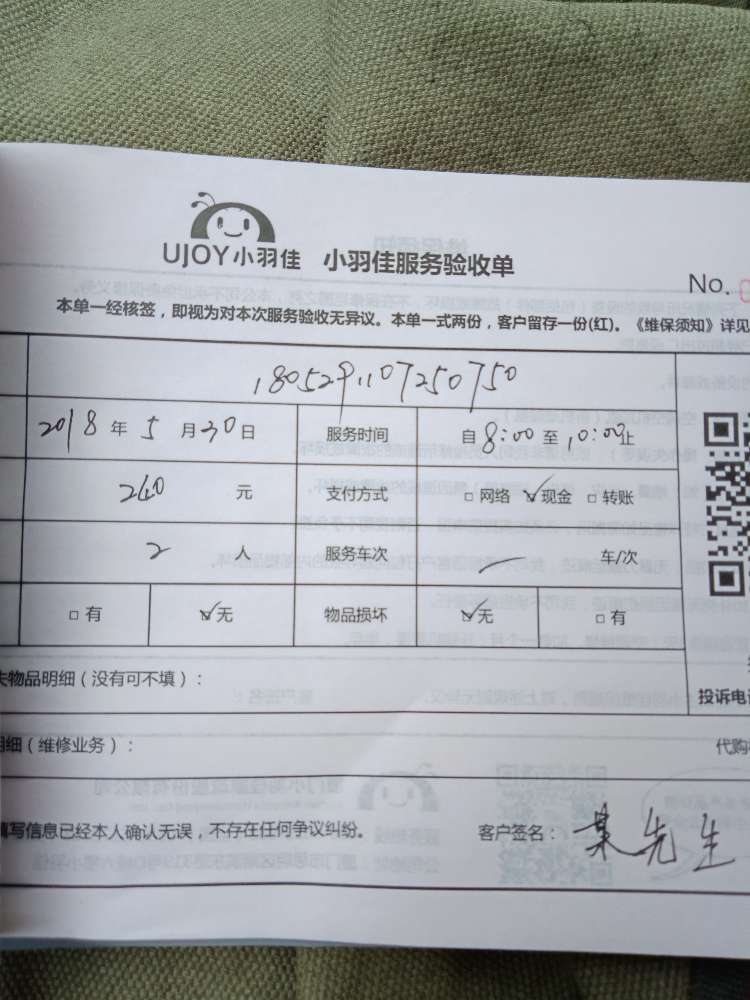 UJOY小羽佳 小羽佳服务验收单
No.
本单一经核签，即视为对本次服务验收无异议。本单一式两份，客户留存一份(红)。《维保须知》详见
1805291107250750
2018年5月30日 服务时间 自8:00至10:00止
240元 支付方式 □网络 ☑现金 □转账
2人 服务车次 — 车/次
□有 ☑无 物品损坏 ☑无 □有
物品明细（没有可不填）：
投诉电
明细（维修业务）：
代购
填写信息已经本人确认无误，不存在任何争议纠纷。 客户签名：某先生